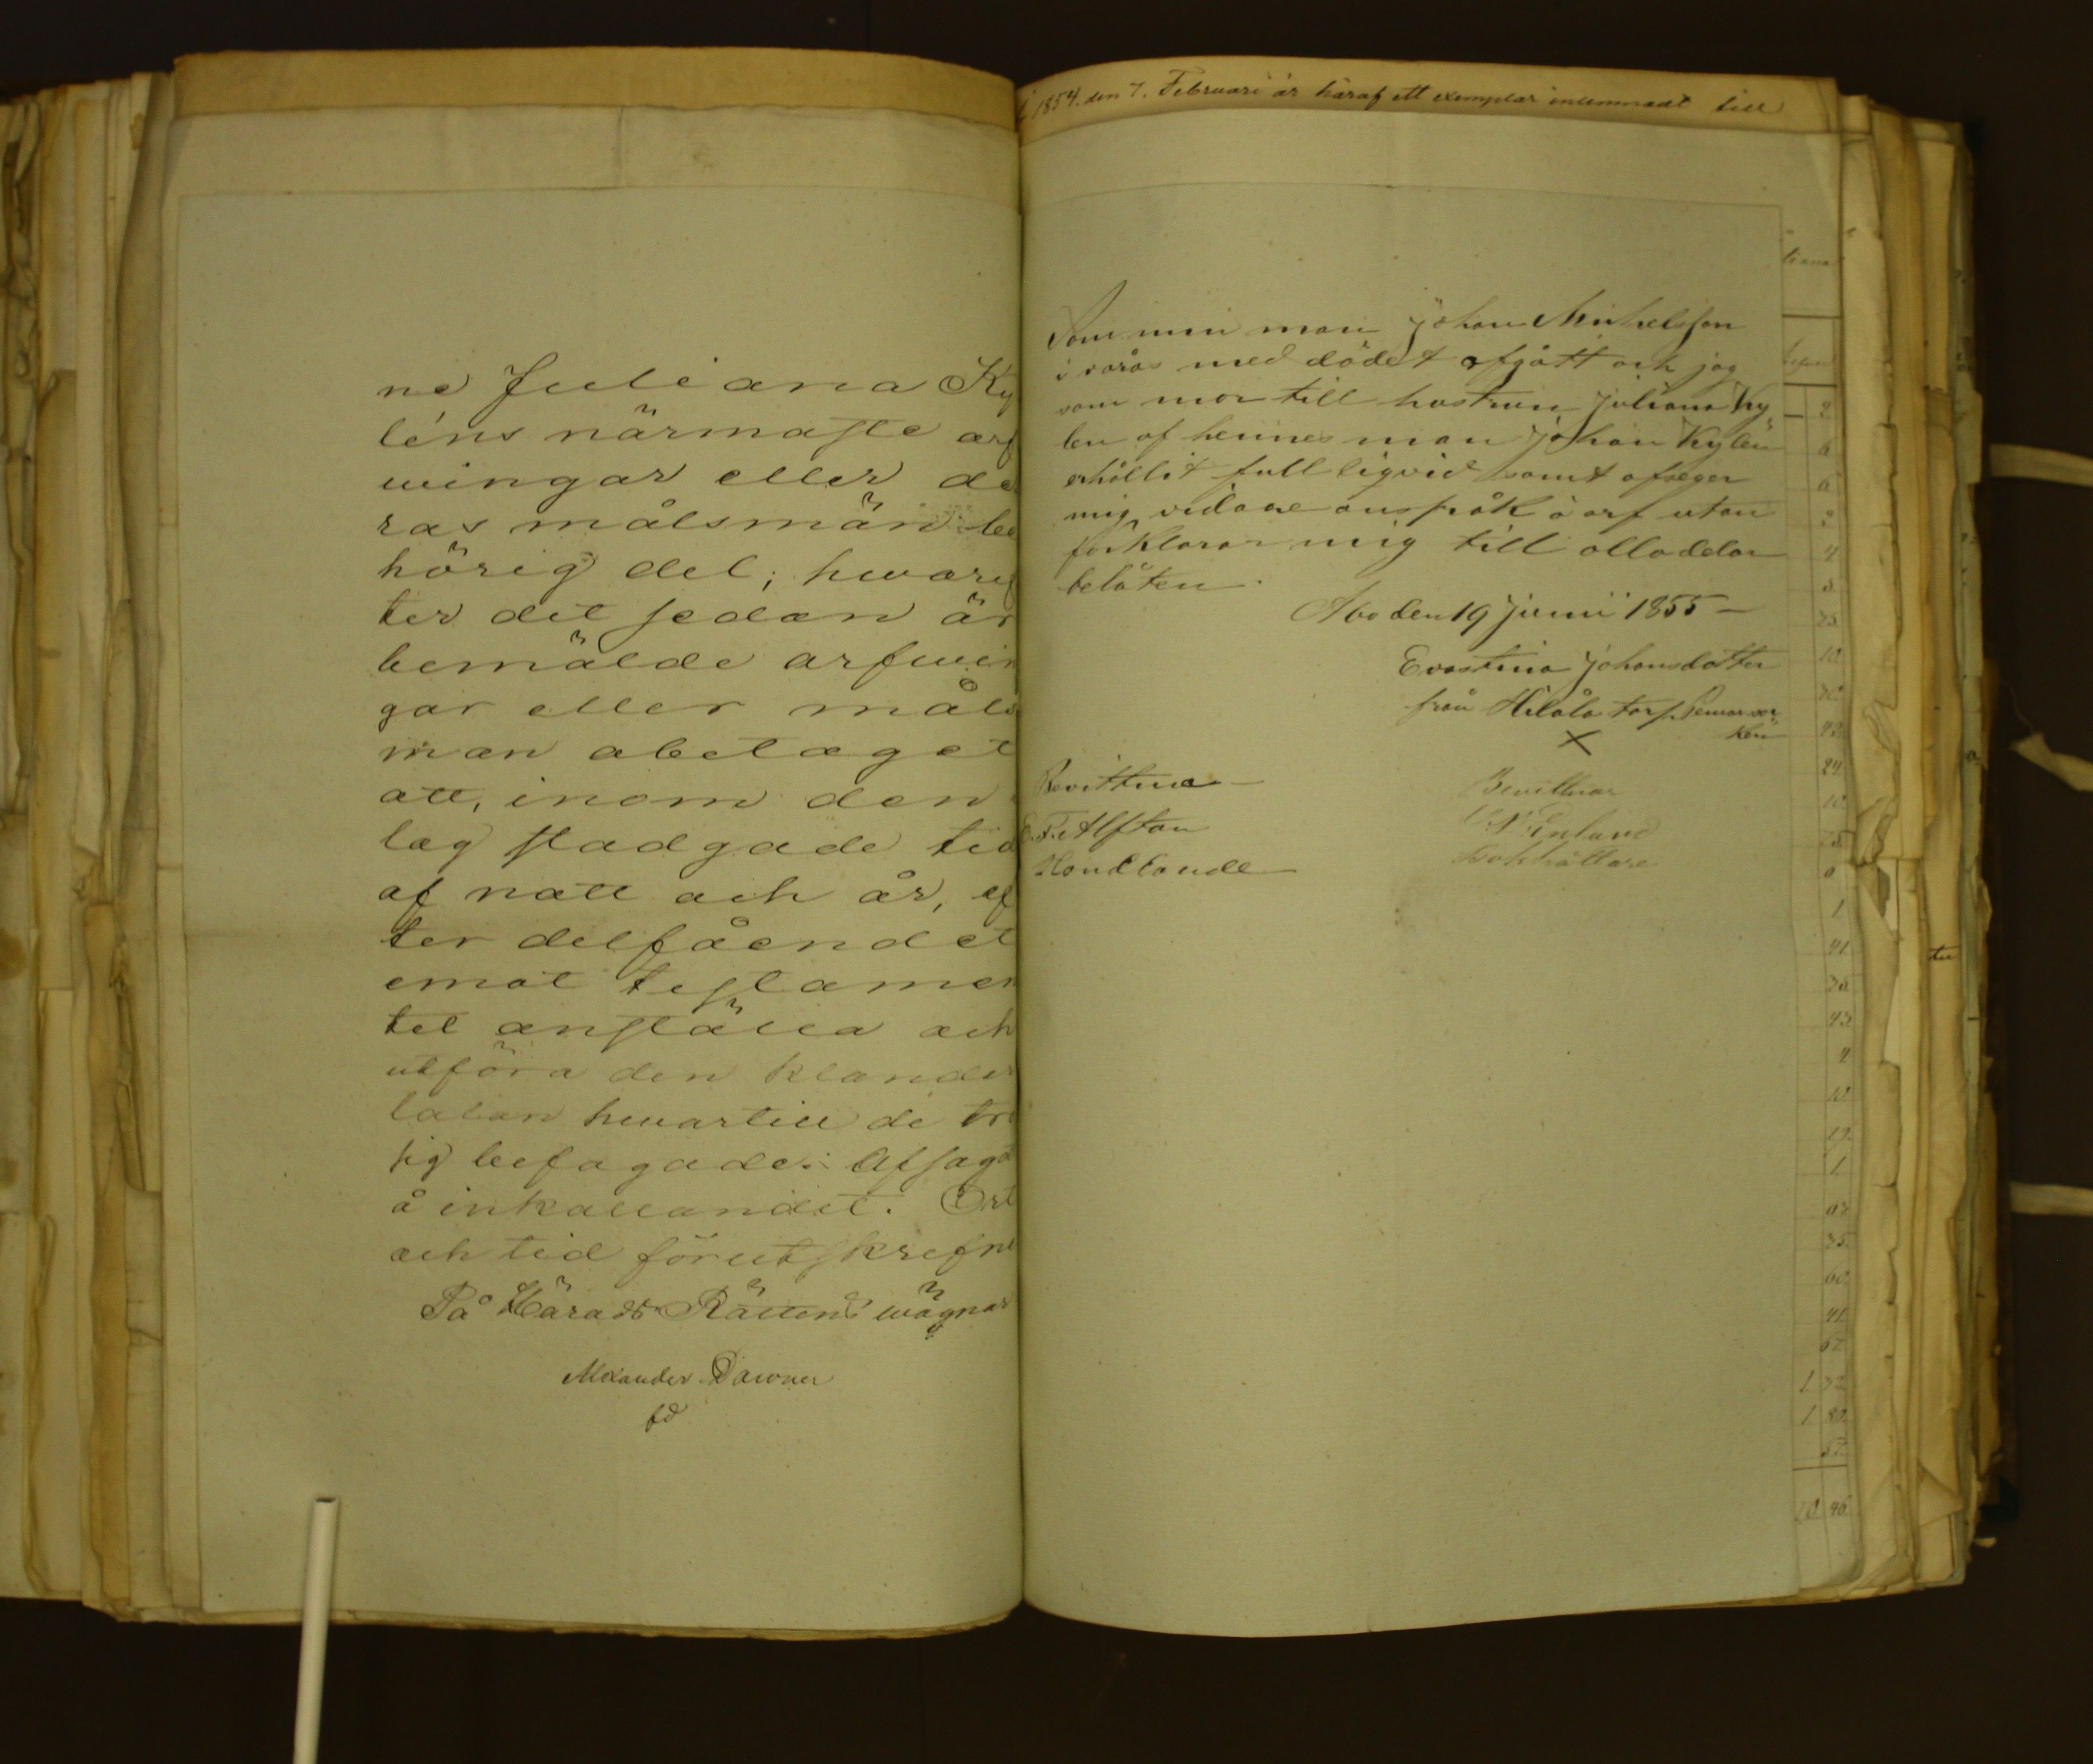 ne Juliana Ky
léns närmaste arf
wingar eller de
ras målsmän be
hörig del; hwaref
ter det sedan är
bemälde arfwin
gar eller måls
man obetaget
att, inom den
lag stadgade tid
af natt och år, ef
ter delfåendet
emot testamen
tet anställa och
utföra den klander
talan hwartill de tro
sig befogade; Afsagdt
å inkallandet. Ort
och tid förutskrefne
På Härads Rättens wägnar
Alexander
1854. den 7. Februari är häraf ett exemplar inlemnadt till
Som min man Johan Michelsson
i voras med dödet afgått och jag
som mor till hustrun Juliana Ky
len af hennes man Johan Kylen
erhållit full liqvid samt afseger
mig vidare anspråk å arf utan
förklarar mig till alla delar
belåten.
Åbo den 19 Junii 1855
Evastina Johansdotter
från Hilala torp
X
Bevittna
Alftan
Handlande
Bevittnar
Enlund
Bokhållare
liana
2
6
6
3
4
3
25
10
43
24
10
75
0
1
41
75
43
4
10
19
1
35
60
41
1
1 80
10 46